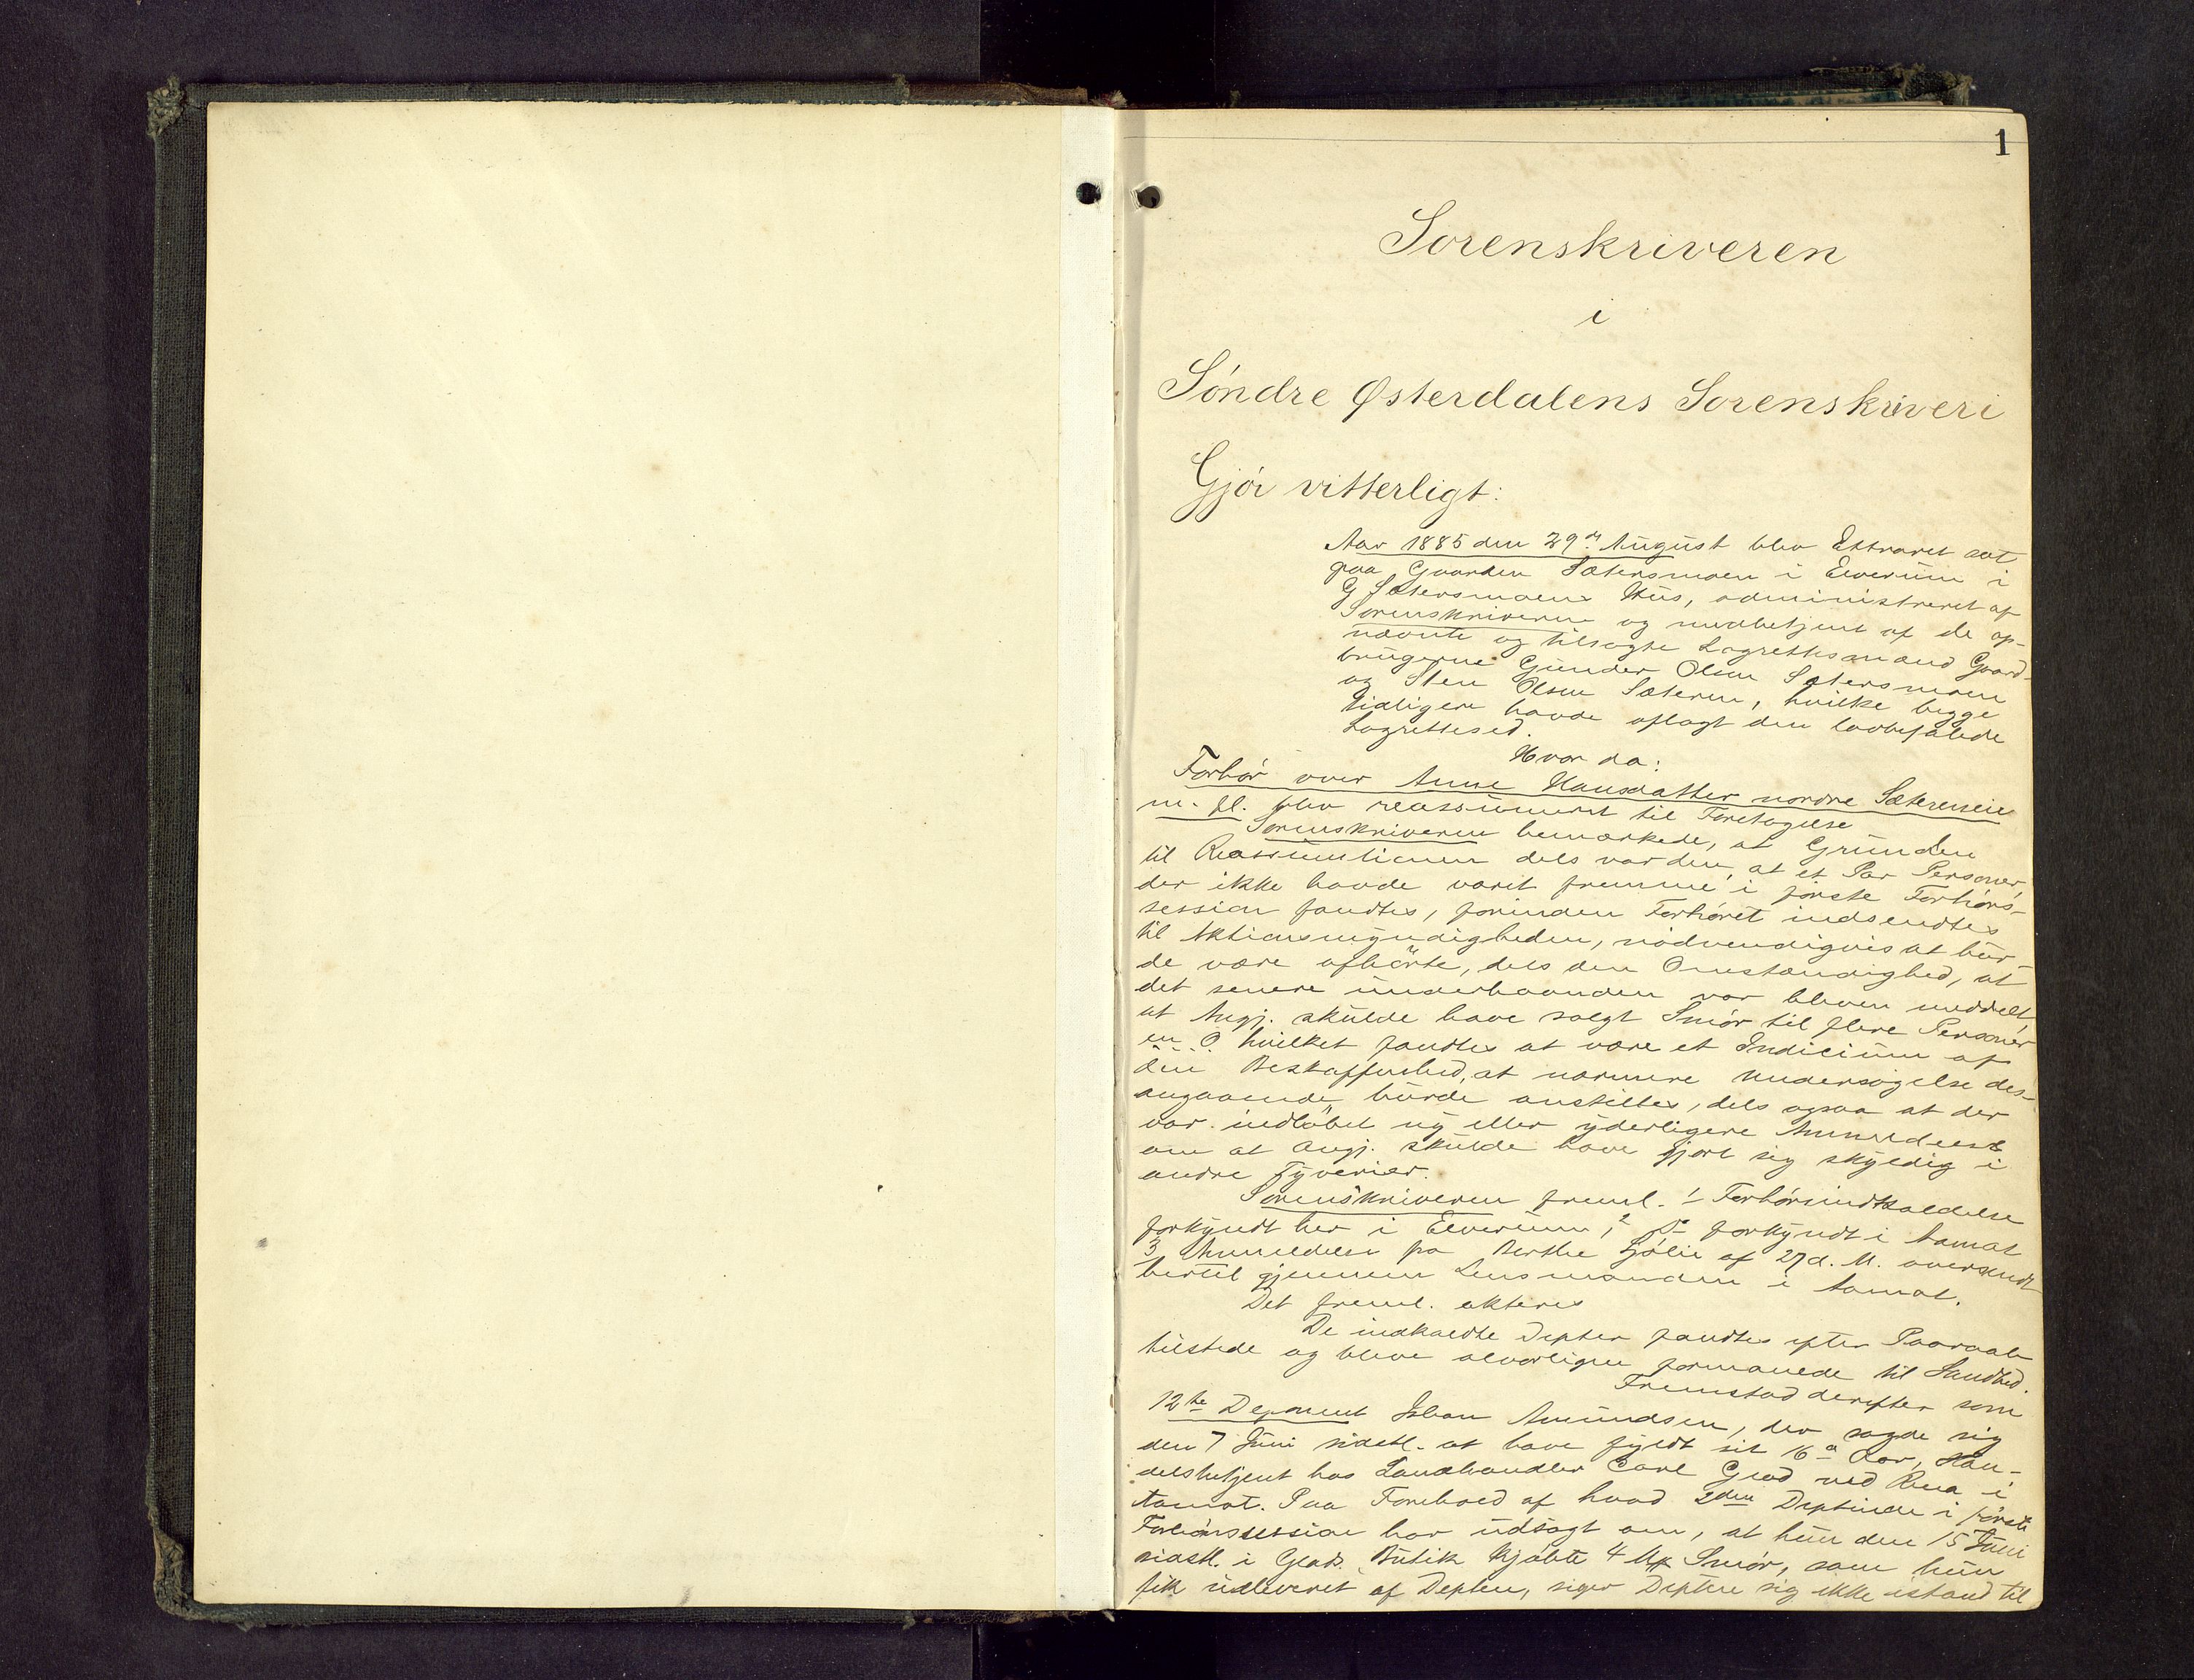 1
Sorenskriveren
i
Söndre Østerdalens Sorenskriveri
Gjör vitterligt:
Aar 1885 den 29de August blev Extraret sat
paa Gaarden Sætersmoen i Elverum i
G Sætersmoens Hus, administreret af
Sorenskriveren og medbetjent af de op-
nævnte og tilsagte Lagrettesmænd Gaard-
brugerne Gunder Olsen Sætersmoen
og Sten Olsen Sæteren, hvilke begge
tidligere havde aflagt den lovbefalede
Lagrettesed.
Hvor da:
Forhör over Anne Hansdatter nordre Sætereneie
m. fl. blev reassumeret til Foretagelse
Sorenskriveren bemærkede, at Grunden
til Reassumtionen dels var den, at et Par Personer
der ikke havde været fremme i förste Forhörs-
session fandtes, forinden Forhöret indsendtes
til Aktionsmyndigheden, nödvendigvis at bur-
de være afhörte, dels den Omstændighed, at
det senere underhaanden var bleven meddelt,
at Angj. skulde have solgt Smör til flere Personer
en . . . ? hvilket fandtes at være et Indicium af
den Beskaffenhed, at nærmere Undersögelse des-
angaaende burde anstilles, dels ogsaa at der
var indlöbet ny eller yderligere Anmeldelse
om at Angj. skulde have gjort sig skyldig i
andre Tyverier.
Sorenskriveren freml. 1 Forhörsindkaldelse
forkyndt her i Elverum, 2 Do forkyndt i Aamot
3 Anmeldelse fra Berthe Fjölie af 27 d. M. oversendt
hertil gjennem Lensmanden i Aamot.
Det freml. akteres
De indkaldte Depter fandtes efter Paaraab
tilstede og bleve alvorligen formanede til Sandhed.
Fremstod derefter som
12te Deponent Johan Amundsen, der sagde sig
den 7 Juni sidstl. at have fyldt sit 16de Aar, Han-
delsbetjent hos Landhandler Carl Grad ved Rena i
Aamot. Paa Forehold af hvad 2den Deptinde i förste
Forhörssession har udsagt om, at hun den 15 Juni
sidstl. i Grads Butik kjöbte 4 Mk Smör, som hun
fik udleveret af Depten, siger Depten sig ikke istand til